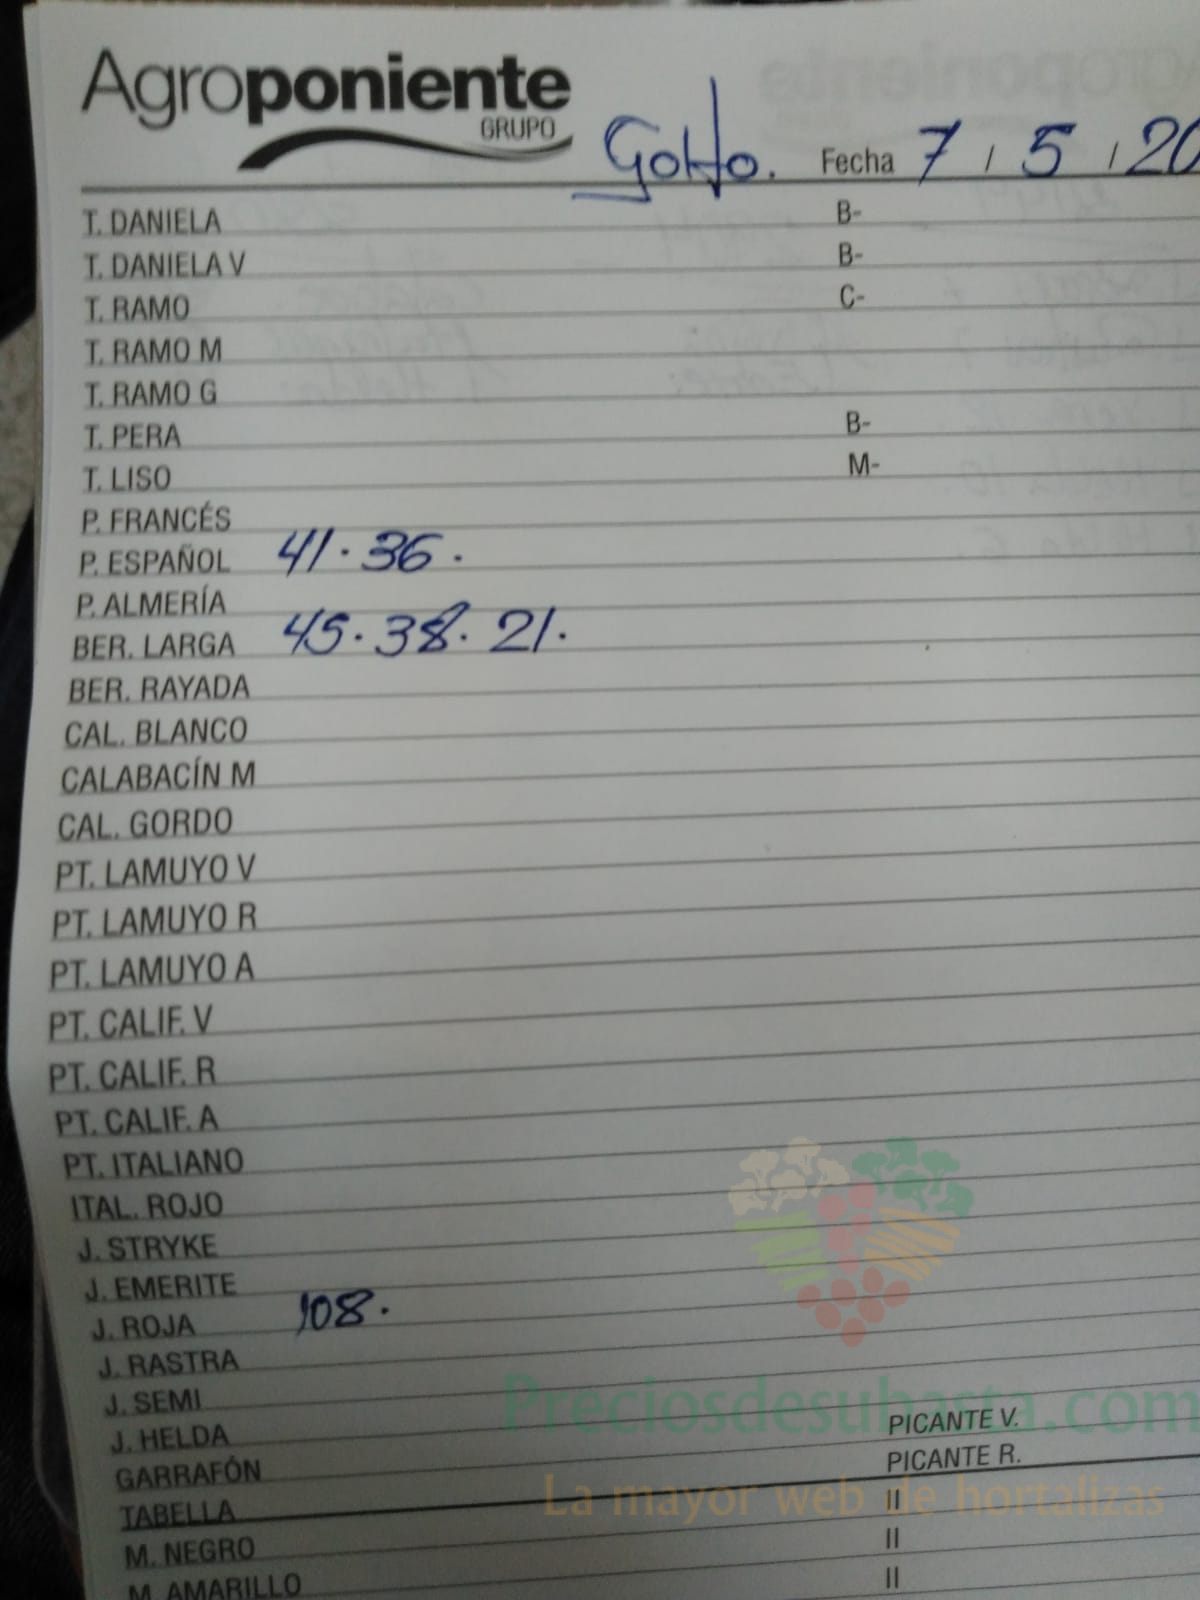 Agroponiente
GRUPO
Golfo. Fecha 7 / 5 / 20
T. DANIELA B-
T. DANIELA V B-
T. RAMO C-
T. RAMO M
T. RAMO G
T. PERA B-
T. LISO M-
P. FRANCÉS
P. ESPAÑOL 41. 36.
P. ALMERÍA
BER. LARGA 45. 38. 21.
BER. RAYADA
CAL. BLANCO
CALABACÍN M
CAL. GORDO
PT. LAMUYO V
PT. LAMUYO R
PT. LAMUYO A
PT. CALIF. V
PT. CALIF. R
PT. CALIF. A
PT. ITALIANO
ITAL. ROJO
J. STRYKE
J. EMERITE
J. ROJA 108.
J. RASTRA
J. SEMI
J. HELDA PICANTE V.
GARRAFÓN PICANTE R.
TABELLA II
M. NEGRO II
M. AMARILLO II
Preciosdesubasta.com
La mayor web de hortalizas